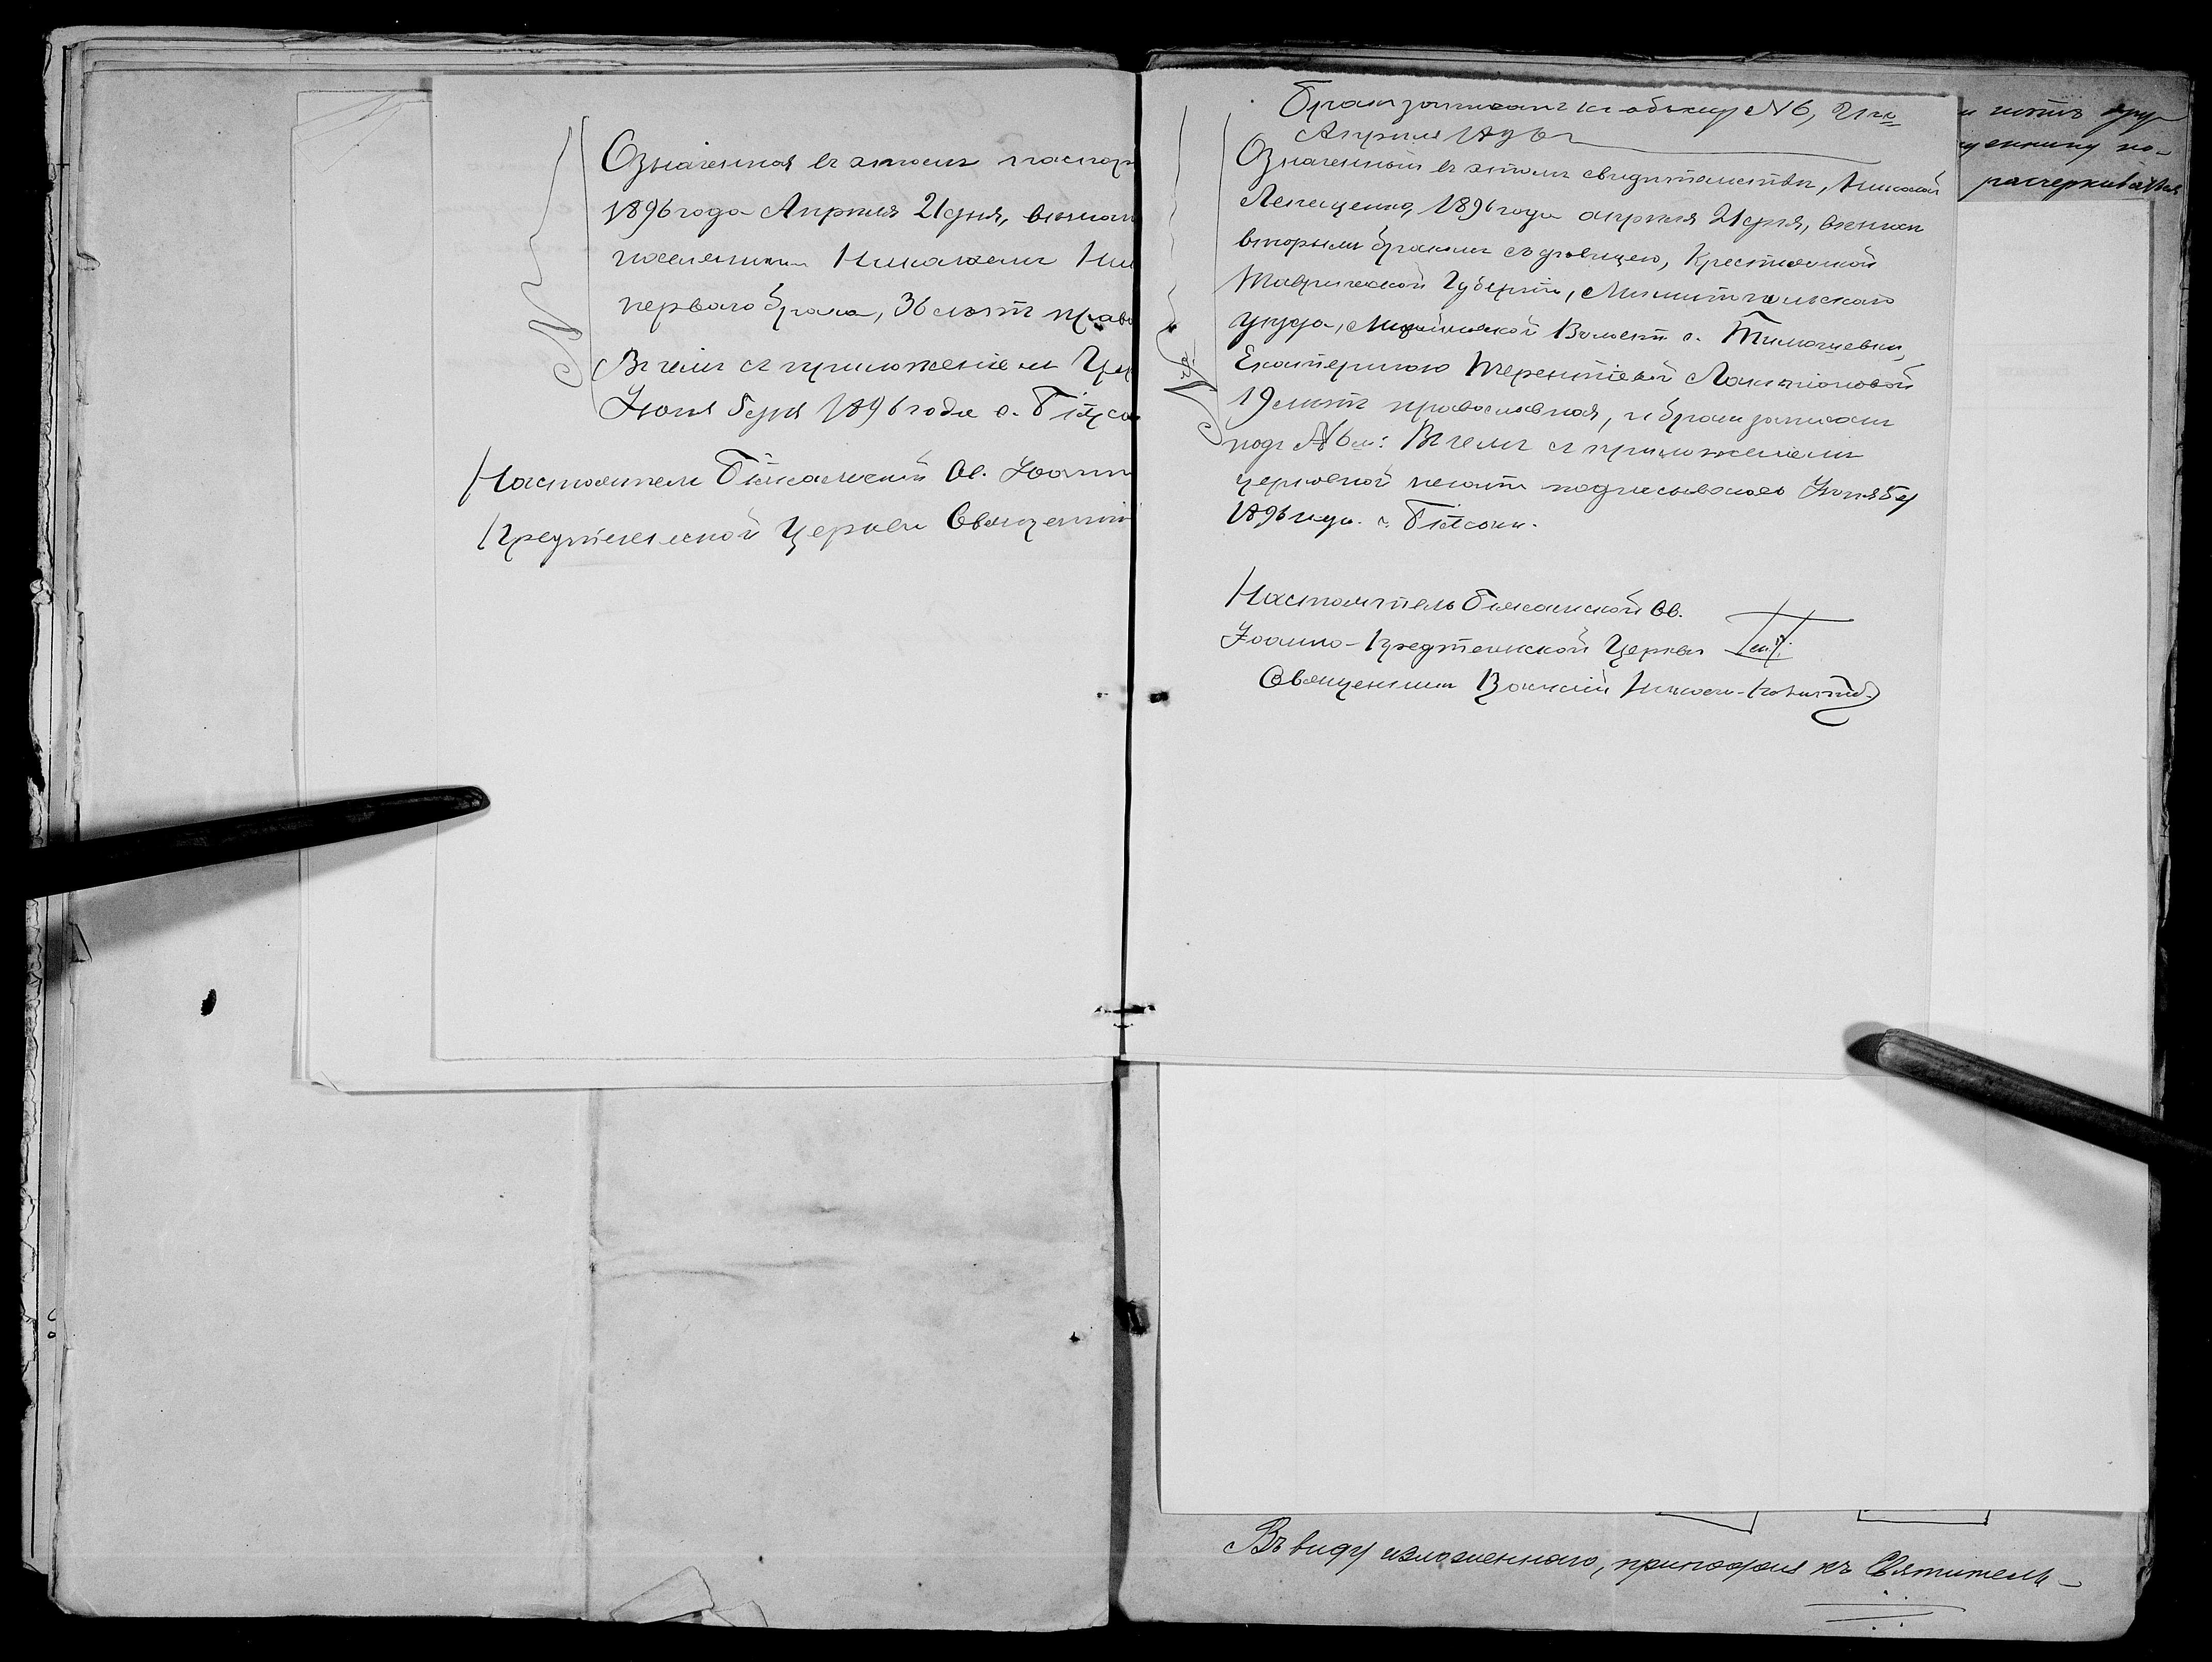 Означенная въ этомъ паспор
1896 года Апрѣля 21 дня, вѣнчан
поселенцемъ Николаемъ
перваго брака, 36 лѣтъ право
Въ чемъ съ приложеніемъ Цер
Іюня 5 дня 1896 года с.
Настоятель Св. Іоанно
Предтеческой Церкви Священни
Бракъ записанъ въ обыску № 6, 21го
Апрѣля 1896 г.
Означенный въ этомъ свидѣтельствѣ, Николай
Лепещенко, 1896 года апрѣля 21 дня, вѣнчан
вторымъ бракомъ съ дѣвицею, Крестьянкой
Таврической Губерніи, Мелитопольскаго
уѣзда, Волости с. Тимошевки,
Екатериною Терентіевой Лактіоновой
19 лѣтъ православная, и бракъ записанъ
подъ № 6м: Въ чемъ съ приложеніемъ
церковной печати подписываюсь Іюня 5 д
1896 года. с.
Настоятель Св.
Іоанно-Предтеческой Церкви
Священникъ
и нѣтъ дру
щеннику по-
расчеркивать
Въ виду изложеннаго, припадая къ Святитель-